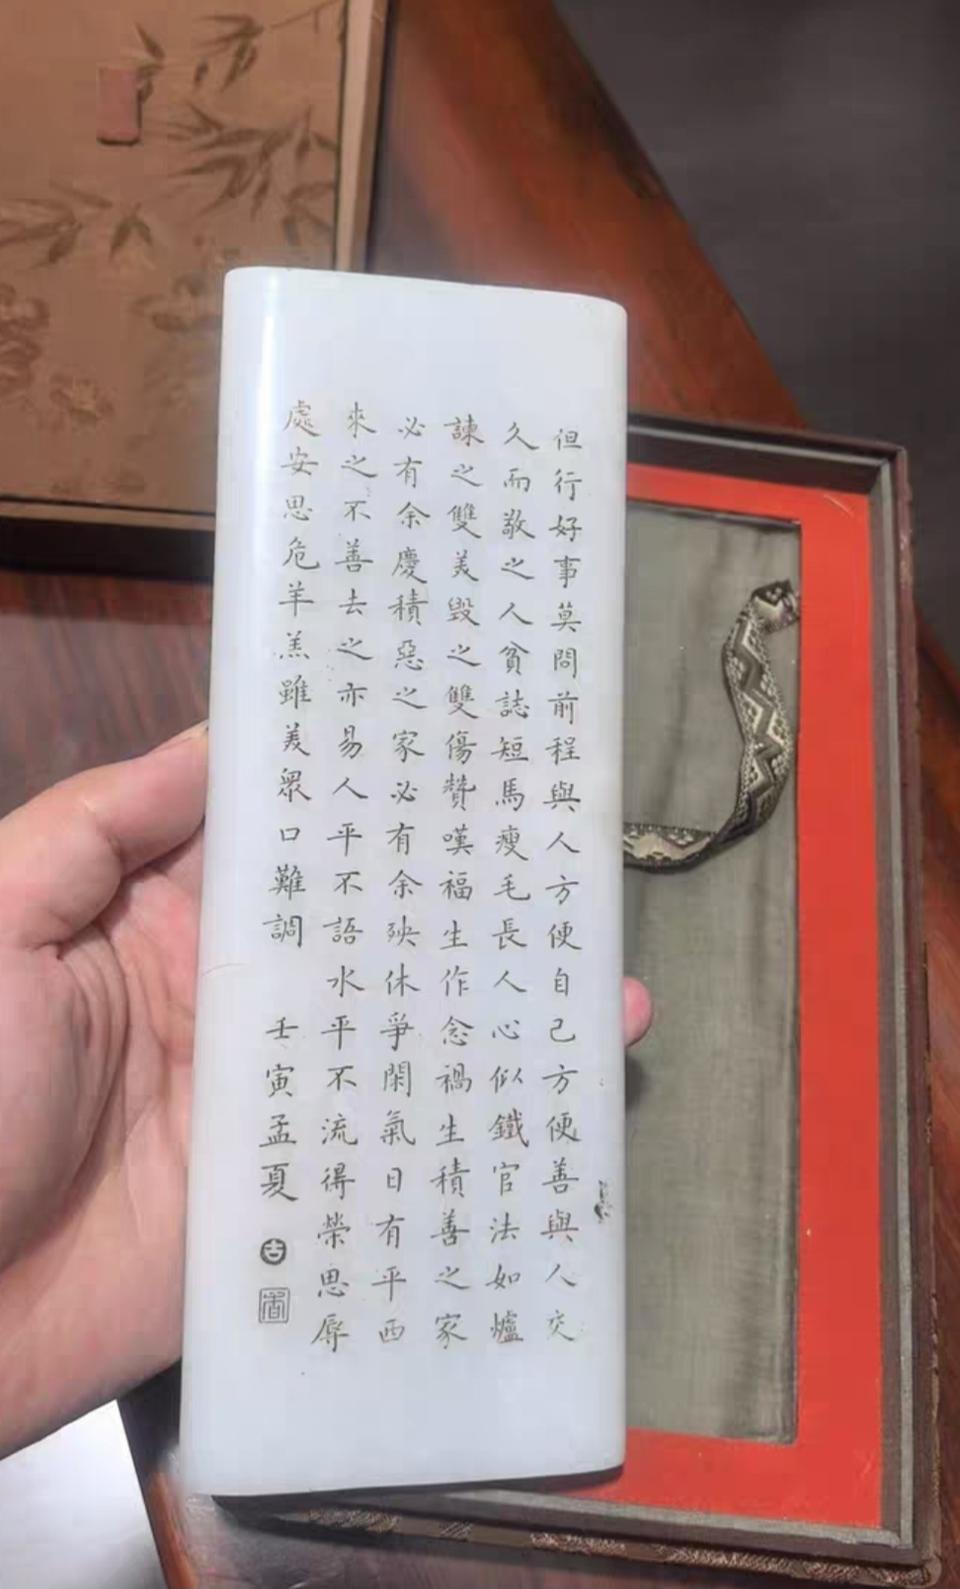 但行好事莫問前程與人方便自己方便善與人交
久而敬之人貧誌短馬瘦毛長人心似鐵官法如爐
諫之雙美毀之雙傷贊嘆福生作念禍生積善之家
必有余慶積惡之家必有余殃休爭閑氣日有平西
來之不善去之亦易人平不語水平不流得榮思辱
處安思危羊羔雖美眾口難調 壬寅孟夏 吉